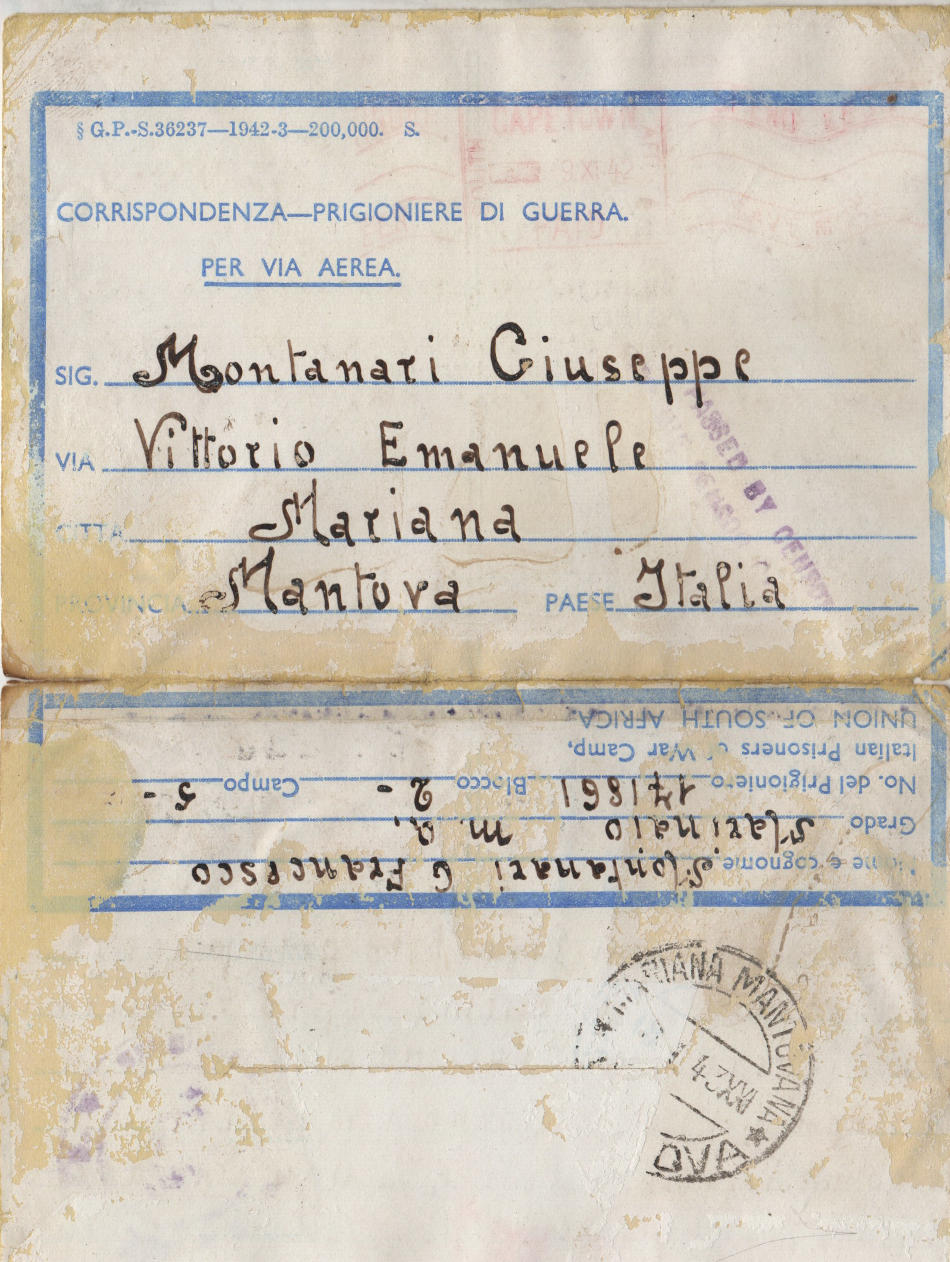 § G.P.-S.36237—1942-3—200,000. S.
CAPETOWN
9 XI 42
PAID
CORRISPONDENZA—PRIGIONIERE DI GUERRA.
PER VIA AEREA.
SIG. Montanari Giuseppe
VIA Vittorio Emanuele
CITTA Mariana
PROVINCIA Mantova PAESE Italia
PASSED BY CENSOR
UNION OF SOUTH AFRICA
Italian Prisoners of War Camp,
No. del Prigioniero 171861 Blocco 2 - Campo 5 -
Grado Marinaio m. a.
Nome e cognome Montanari G Francesco
MARIANA MANTOVANA